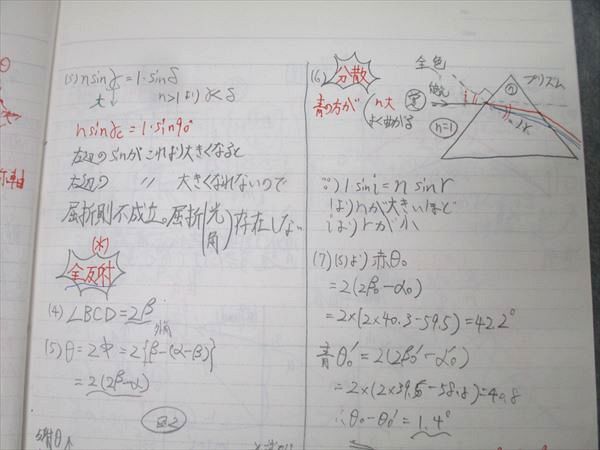 (3) n sin γ = 1・sin δ
大 n>1より γ<δ
n sin γc = 1・sin 90°
左辺の sin がこれより大きくなると
右辺の 〃 大きくなれないので
屈折則不成立。屈折(光 角)存在しない
(※)
全反射
(4) ∠BCD = 2β
(5) θ = 2φ = 2{β-(α-β)}
外角
= 2(2β-α)
図2
(6) 分散
青の方が n大
よく曲がる
全色
プリズム
n
n=1
i
∵) 1 sin i = n sin r
より n が大きいほど
より r が小
(7) (5)より 赤θ₀
= 2(2β₀-α₀)
= 2×(2×40.3-59.5) = 42.2°
青θ₀' = 2(2β₀'-α₀')
= 2×(2×39.5-58.8) = 40.8
∴ θ₀-θ₀' = 1.4°